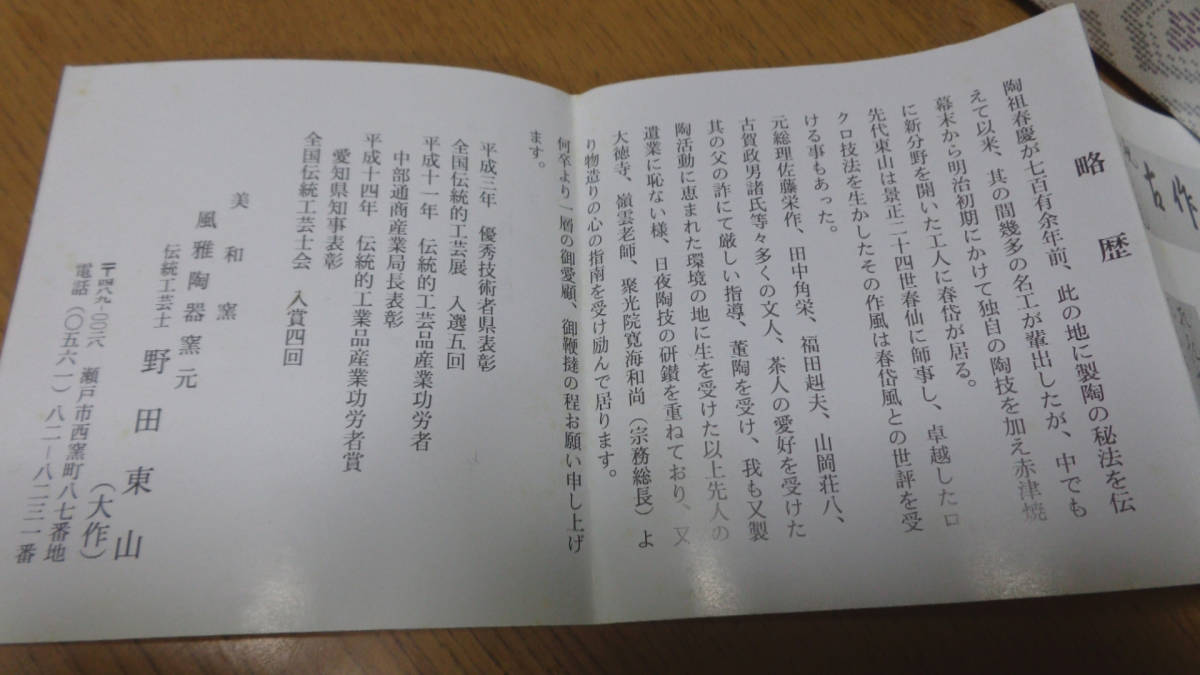 略歴
陶祖春慶が七百有余年前、此の地に製陶の秘法を伝
えて以来、其の間幾多の名工が輩出したが、中でも
幕末から明治初期にかけて独自の陶技を加え赤津焼
に新分野を開いた工人に春岱が居る。
先代東山は景正二十四世春仙に師事し、卓越したロ
クロ技法を生かしたその作風は春岱風との世評を受
ける事もあった。
元総理佐藤栄作、田中角栄、福田赳夫、山岡荘八、
古賀政男諸氏等々多くの文人、茶人の愛好を受けた
其の父の許にて厳しい指導、薫陶を受け、我も又製
陶活動に恵まれた環境の地に生を受けた以上先人の
遺業に恥ない様、日夜陶技の研鑽を重ねており、又
大徳寺、嶺雲老師、聚光院寛海和尚（宗務総長）よ
り物造りの心の指南を受け励んで居ります。
何卒より一層の御愛顧、御鞭撻の程お願い申し上げ
ます。
平成三年 優秀技術者県表彰
全国伝統的工芸展 入選五回
平成十一年 伝統的工芸品産業功労者
中部通商産業局長表彰
平成十四年 伝統的工業品産業功労者賞
愛知県知事表彰
全国伝統工芸士会 入賞四回
美和窯
風雅陶器窯元
伝統工芸士 野田東山
（大作）
〒四八九-〇〇三八 瀬戸市西窯町八七番地
電話（〇五六一）八二-八二三一番
古作